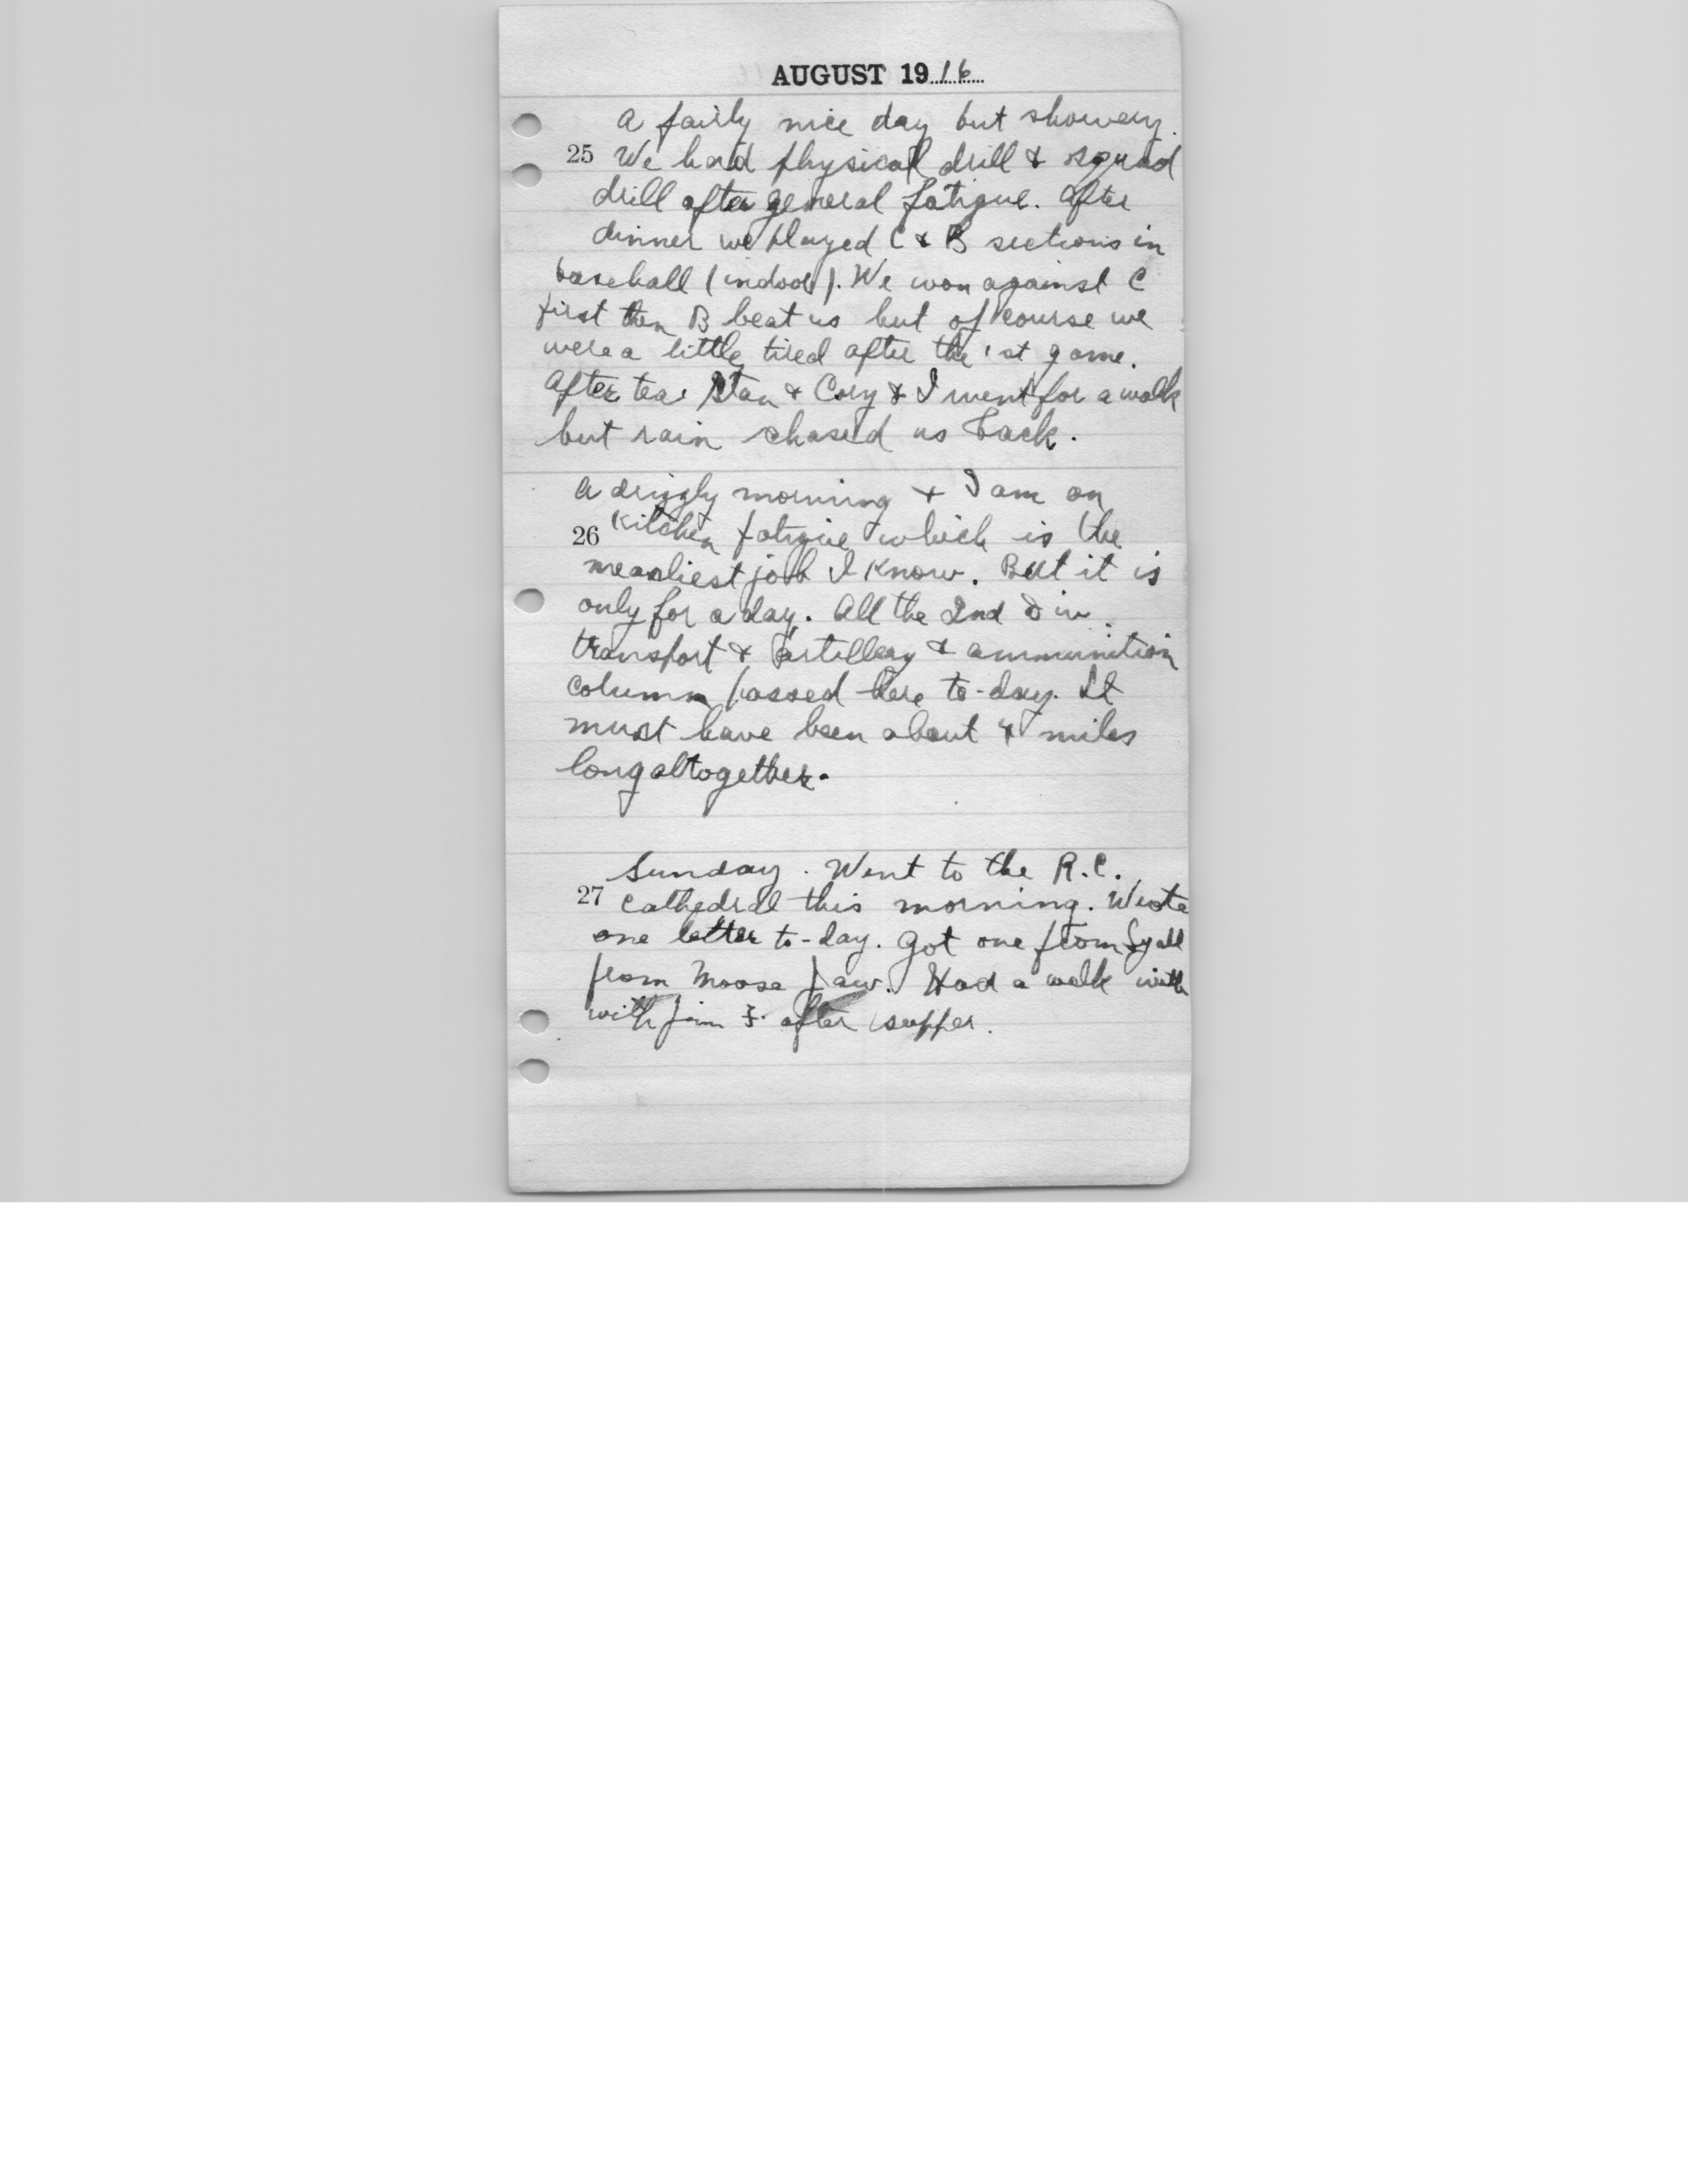 AUGUST 1916
A fairly nice day but showery.
25 We had physical drill & squad
drill after general fatigue. After
dinner we played C & B sections in
baseball (indoor). We won against C
first then B beat us but of course we
were a little tired after the 1st game.
After tea Stan & Cory & I went for a walk
but rain chased us back.
A drizzly morning & I am on
26 Kitchen fatigue which is the
meanliest job I know. But it is
only for a day. All the 2nd Div.
transport & artillery & ammunition
column passed here to-day. It
must have been about 4 miles
long altogether.
Sunday. Went to the R.C.
27 Cathedral this morning. Wrote
one letter to-day. Got one from Lyall
from Moose Jaw. Had a walk with
with Jim F. after supper.